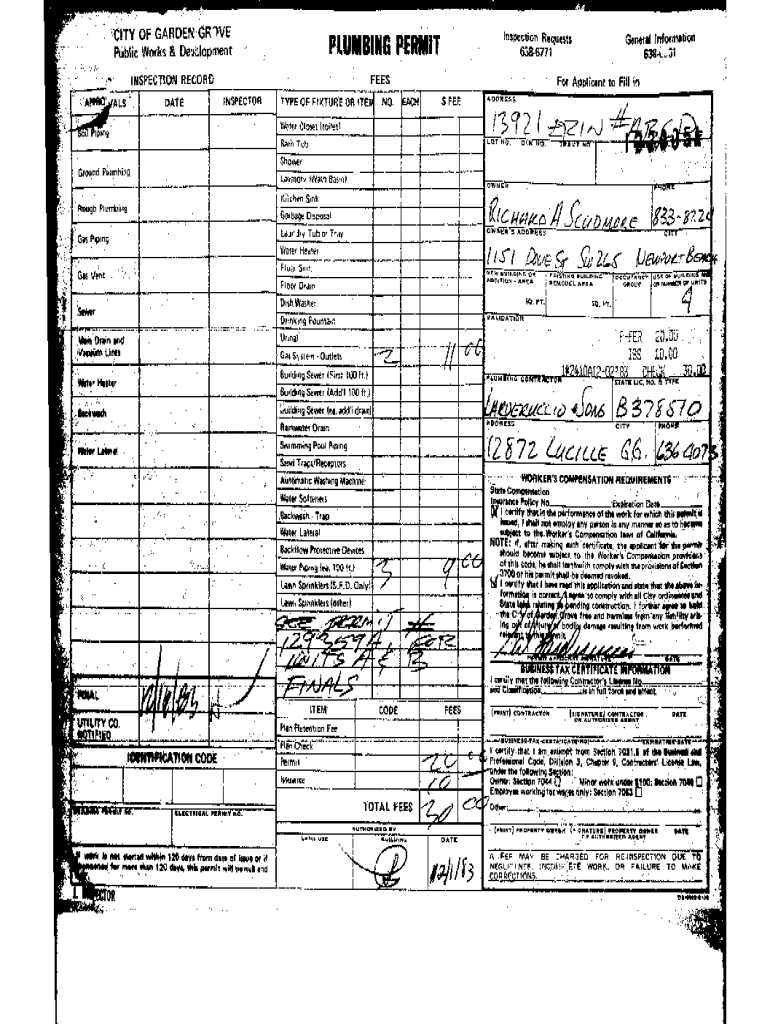 CITY OF GARDEN GROVE
Public Works & Development
PLUMBING PERMIT
Inspection Requests
638-6771
General Information
INSPECTION RECORD
FEES
For Applicant to Fill in
APPROVALS DATE INSPECTOR
TYPE OF FIXTURE OR ITEM NO. EACH $ FEE
ADDRESS
13921 ERIN #
Soil Piping
Ground Plumbing
Rough Plumbing
Gas Piping
Gas Vent
Sewer
Main Drain and
Vacuum Lines
Water Heater
Backwash
Water Lateral
FINAL
UTILITY CO.
NOTIFIED
IDENTIFICATION CODE
ELECTRICAL PERMIT NO.
If work is not started within 120 days from date of issue or if
suspended for more than 120 days, this permit will be null and
INSPECTOR
Water Closet (toilet)
Bath Tub
Shower
Lavatory (Wash Basin)
Kitchen Sink
Garbage Disposal
Laundry Tub or Tray
Water Heater
Floor Sink
Floor Drain
Dish Washer
Drinking Fountain
Urinal
Gas System - Outlets 2 11 00
Building Sewer (First 100 ft.)
Building Sewer (Add'l 100 ft.)
Building Sewer (ea. add'l drain)
Rainwater Drain
Swimming Pool Piping
Sand Traps/Receptors
Automatic Washing Machine
Water Softeners
Backwash - Trap
Water Lateral
Backflow Protective Devices
Water Piping (ea. 100 ft.) 3 9 00
Lawn Sprinklers (S.F.D. Only)
Lawn Sprinklers (other)
SEE PERMIT #
129359A, FOR
UNITS A & B
FINALS
ITEM CODE FEES
Plan Retention Fee
Plan Check
Permit 20 00
Issuance 10
TOTAL FEES 30 00
AUTHORIZED BY
LAND USE BUILDING DATE
12/1/83
LOT NO. BLK NO. TRACT NO.
OWNER PHONE
RICHARD A SCUDMORE 833-872
OWNER'S ADDRESS CITY
1151 DOVE ST SU 265 NEWPORT BEACH
NEW BUILDING OR
ADDITION - AREA
EXISTING BUILDING
REMODEL AREA
OCCUPANCY
GROUP
USE OF BUILDING AND
OR NUMBER OF UNITS
SQ. FT. SQ. FT. 4
VALIDATION
P-FER 20.00
ISS 10.00
CHECK 30.00
PLUMBING CONTRACTOR STATE LIC. NO. & TYPE
LARDERUCCIO & SONS B378570
ADDRESS CITY PHONE
12872 LUCILLE G.G. 636 4073
WORKER'S COMPENSATION REQUIREMENTS
State Compensation
Insurance Policy No. Expiration Date
I certify that in the performance of the work for which this permit is
issued, I shall not employ any person in any manner so as to become
subject to the Worker's Compensation laws of California.
NOTE: If, after making such certificate, the applicant for the permit
should become subject to the Worker's Compensation provisions
of this code, he shall forthwith comply with the provisions of Section
3700 or his permit shall be deemed revoked.
I certify that I have read this application and state that the above in-
formation is correct. I agree to comply with all City ordinances and
State laws relating to pending construction. I further agree to hold
the City of Garden Grove free and harmless from any liability aris-
ing out of injury or bodily damage resulting from work performed
relevant to this permit.
DATE
BUSINESS TAX CERTIFICATE INFORMATION
I certify that the following Contractor's License No.
and Classification is in full force and effect.
(PRINT) CONTRACTOR (SIGNATURE) CONTRACTOR DATE
OR AUTHORIZED AGENT
BUSINESS TAX CERTIFICATE NO. EXPIRATION DATE
I certify that I am exempt from Section 7031.5 of the Business and
Professional Code, Division 3, Chapter 9, Contractors' License Law,
under the following Section:
Owner: Section 7044 Minor work under $100: Section 7048
Employee working for wages only: Section 7053
Other:
(PRINT) PROPERTY OWNER (SIGNATURE) PROPERTY OWNER DATE
OR AUTHORIZED AGENT
A FEE MAY BE CHARGED FOR REINSPECTION DUE TO
NEGLIGENCE, INCOMPLETE WORK, OR FAILURE TO MAKE
CORRECTIONS.